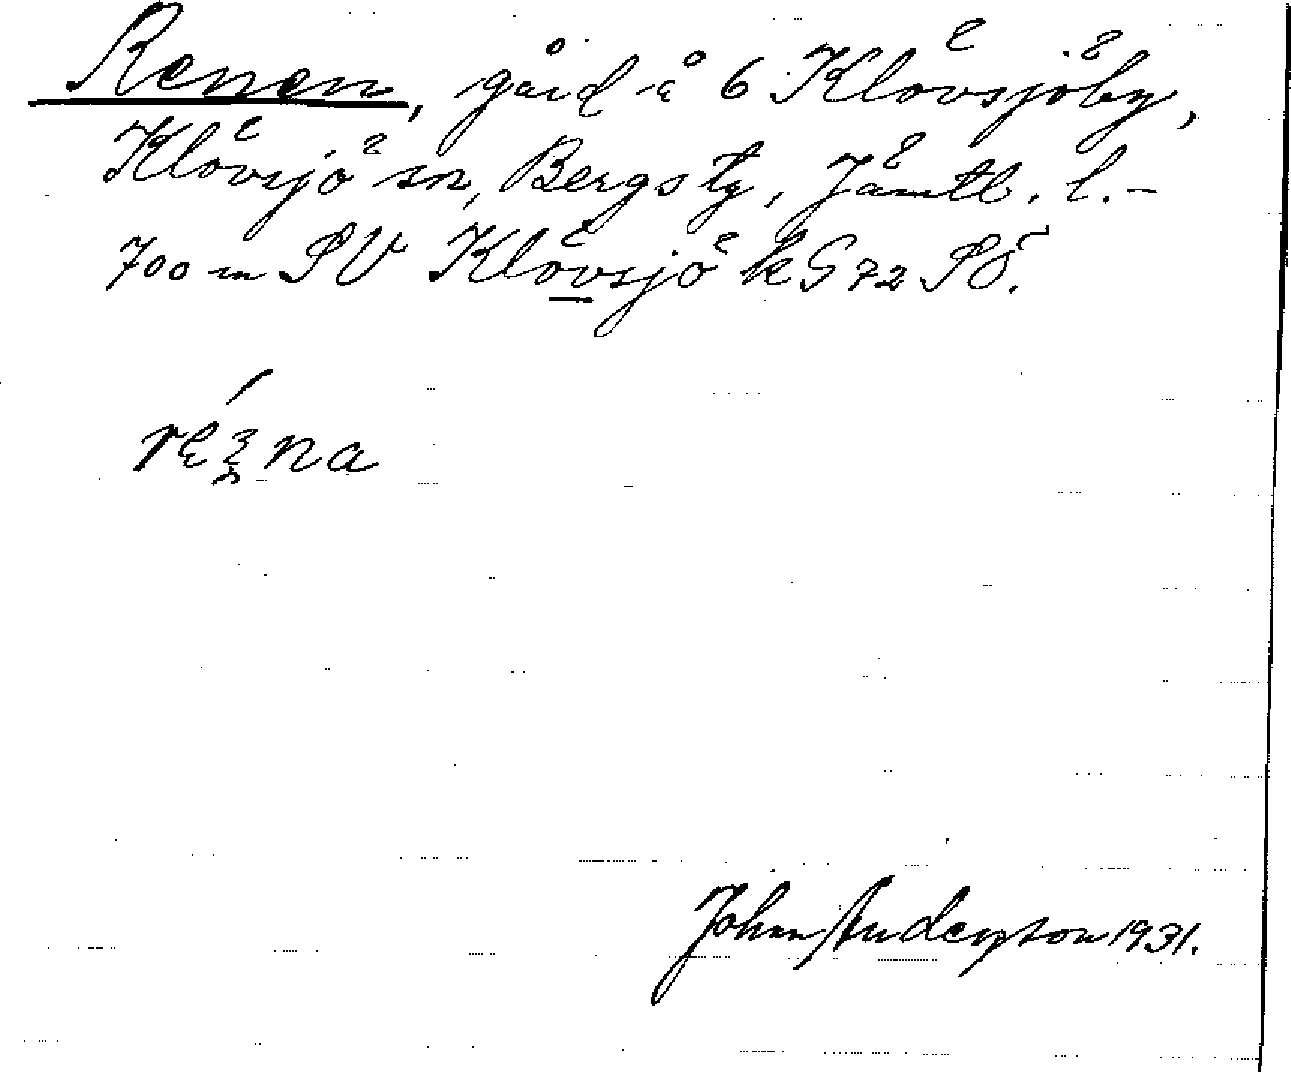 Renen, gård å 6 Klövsjöby,
Klövsjö sn, Bergs tg, Jämtl. l. –
700 m SV Klövsjö k G 72 SÖ.
John Anderson 1931.